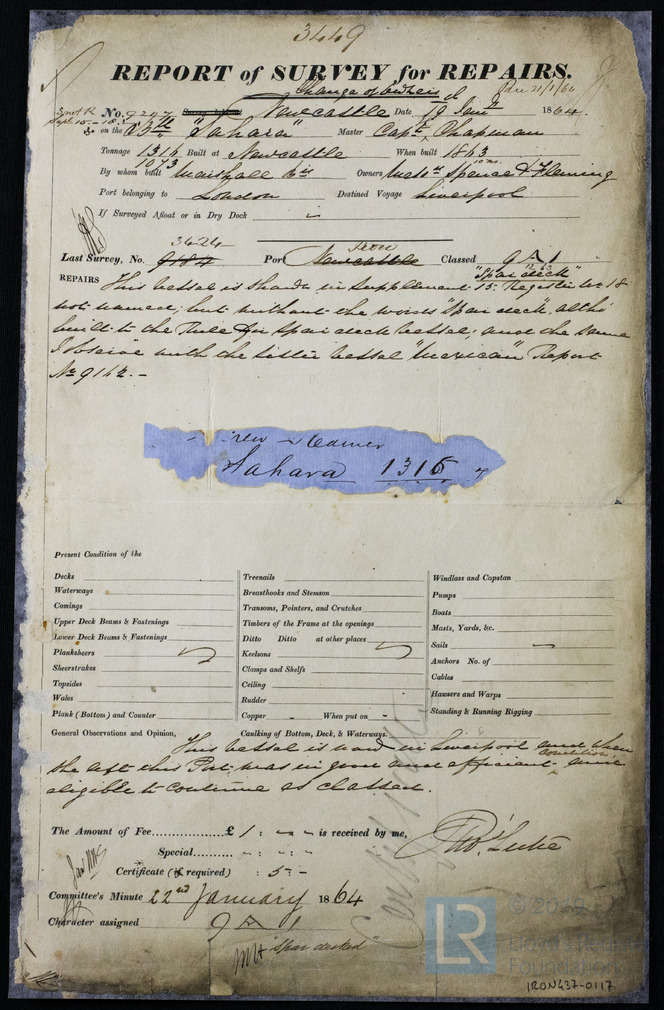 3449
REPORT of SURVEY for REPAIRS.
Change of owners
Rec 21/1/64
No. 9247 Newcastle Date 19 Jany 1864.
on the "Sahara" Master Capt. Chapman
Tonnage 1314 Built at Newcastle When built 1863
1073 10 mo.
By whom built Marshall Bros Owners Messrs Spence & Fleming
Port belonging to London Destined Voyage Liverpool
If Surveyed Afloat or in Dry Dock
3424 Iron
Last Survey, No. 9184 Port Newcastle Classed 9 A 1
"Spar deck"
REPAIRS This vessel is shown in Supplement 15. Register Wo 18
not named, but without the words "Spar deck", altho
built to the Rule for Spar deck vessel; and the same
I observe with the sister vessel "Mexican" Report
No 9142. -
Steamer
Sahara 1316
Present Condition of the
Decks Treenails Windlass and Capstan
Waterways Breasthooks and Stemson Pumps
Comings Transoms, Pointers, and Crutches Boats
Upper Deck Beams & Fastenings Timbers of the Frame at the openings Masts, Yards, &c.
Lower Deck Beams & Fastenings Ditto Ditto at other places Sails
Planksheers Keelsons Anchors No. of
Sheerstrakes Clamps and Shelfs Cables
Topsides Ceiling Hawsers and Warps
Wales Rudder Standing & Running Rigging
Plank (Bottom) and Counter Copper - When put on -
General Observations and Opinion, Caulking of Bottom, Deck, & Waterways.
This vessel is now in Liverpool and when
she left this Port, was in good and efficient condition, and
eligible to continue as classed.
The Amount of Fee............£ 1 : - - is received by me,
Special........ - : - : -
Certificate (if required) : 5 : -
Thos. Luke
Committee's Minute 22nd January 1864
Character assigned 9 A 1
"Spar decked"
LR
© 2019
Lloyd's Register
Foundation
IRON437-0117